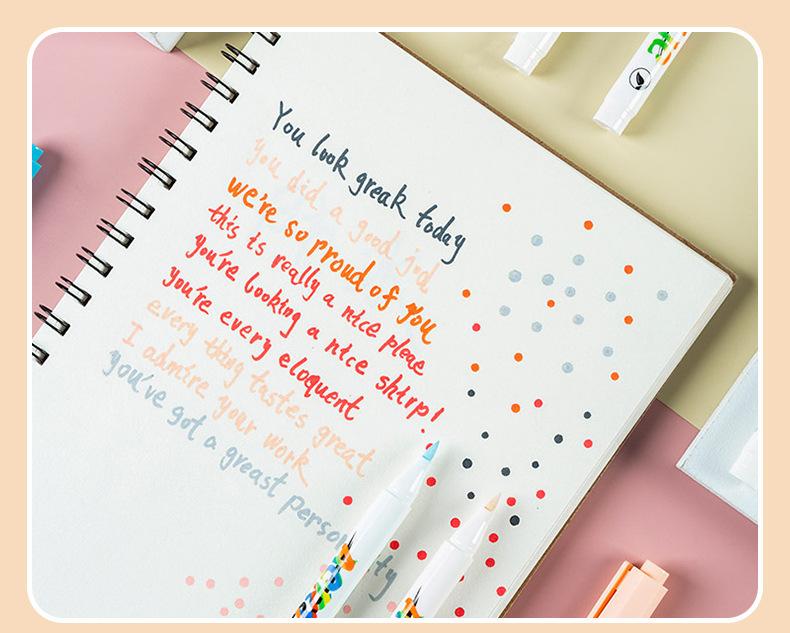 You look greak today
you did a good jod
we're so proud of you
this is really a nice pleae
you're looking a nice shirp!
you're every eloquent
every thing tastes great
I admire your work
you've got a greast person ty